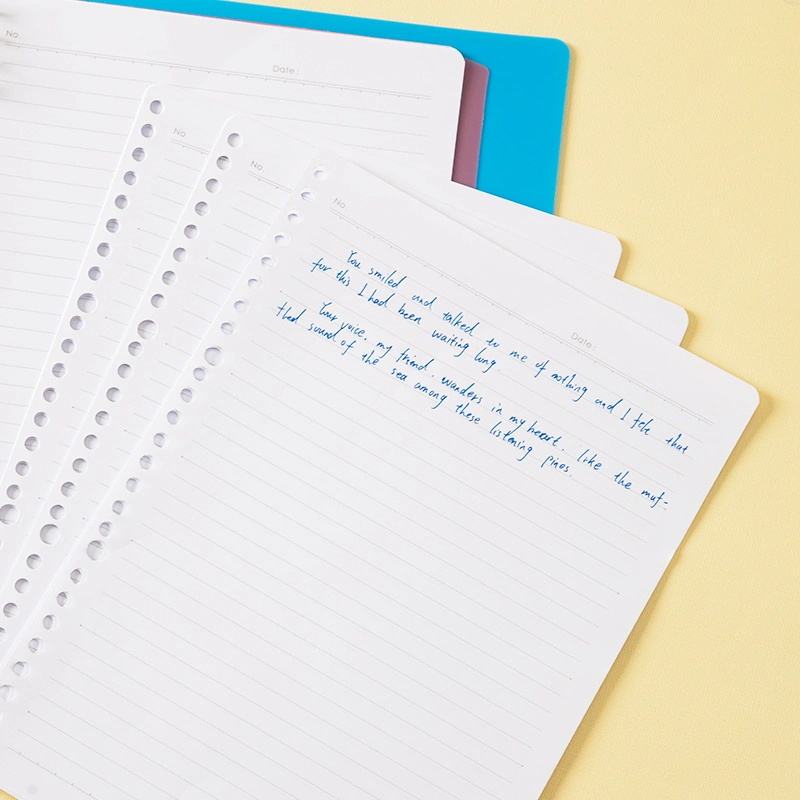 No.
Date :
No
No.
No.
Date :
You smiled and talked to me of nothing and I felt that
for this I had been waiting long.
Your voice, my friend, wanders in my heart, like the muf-
fled sound of the sea among these listening pines.